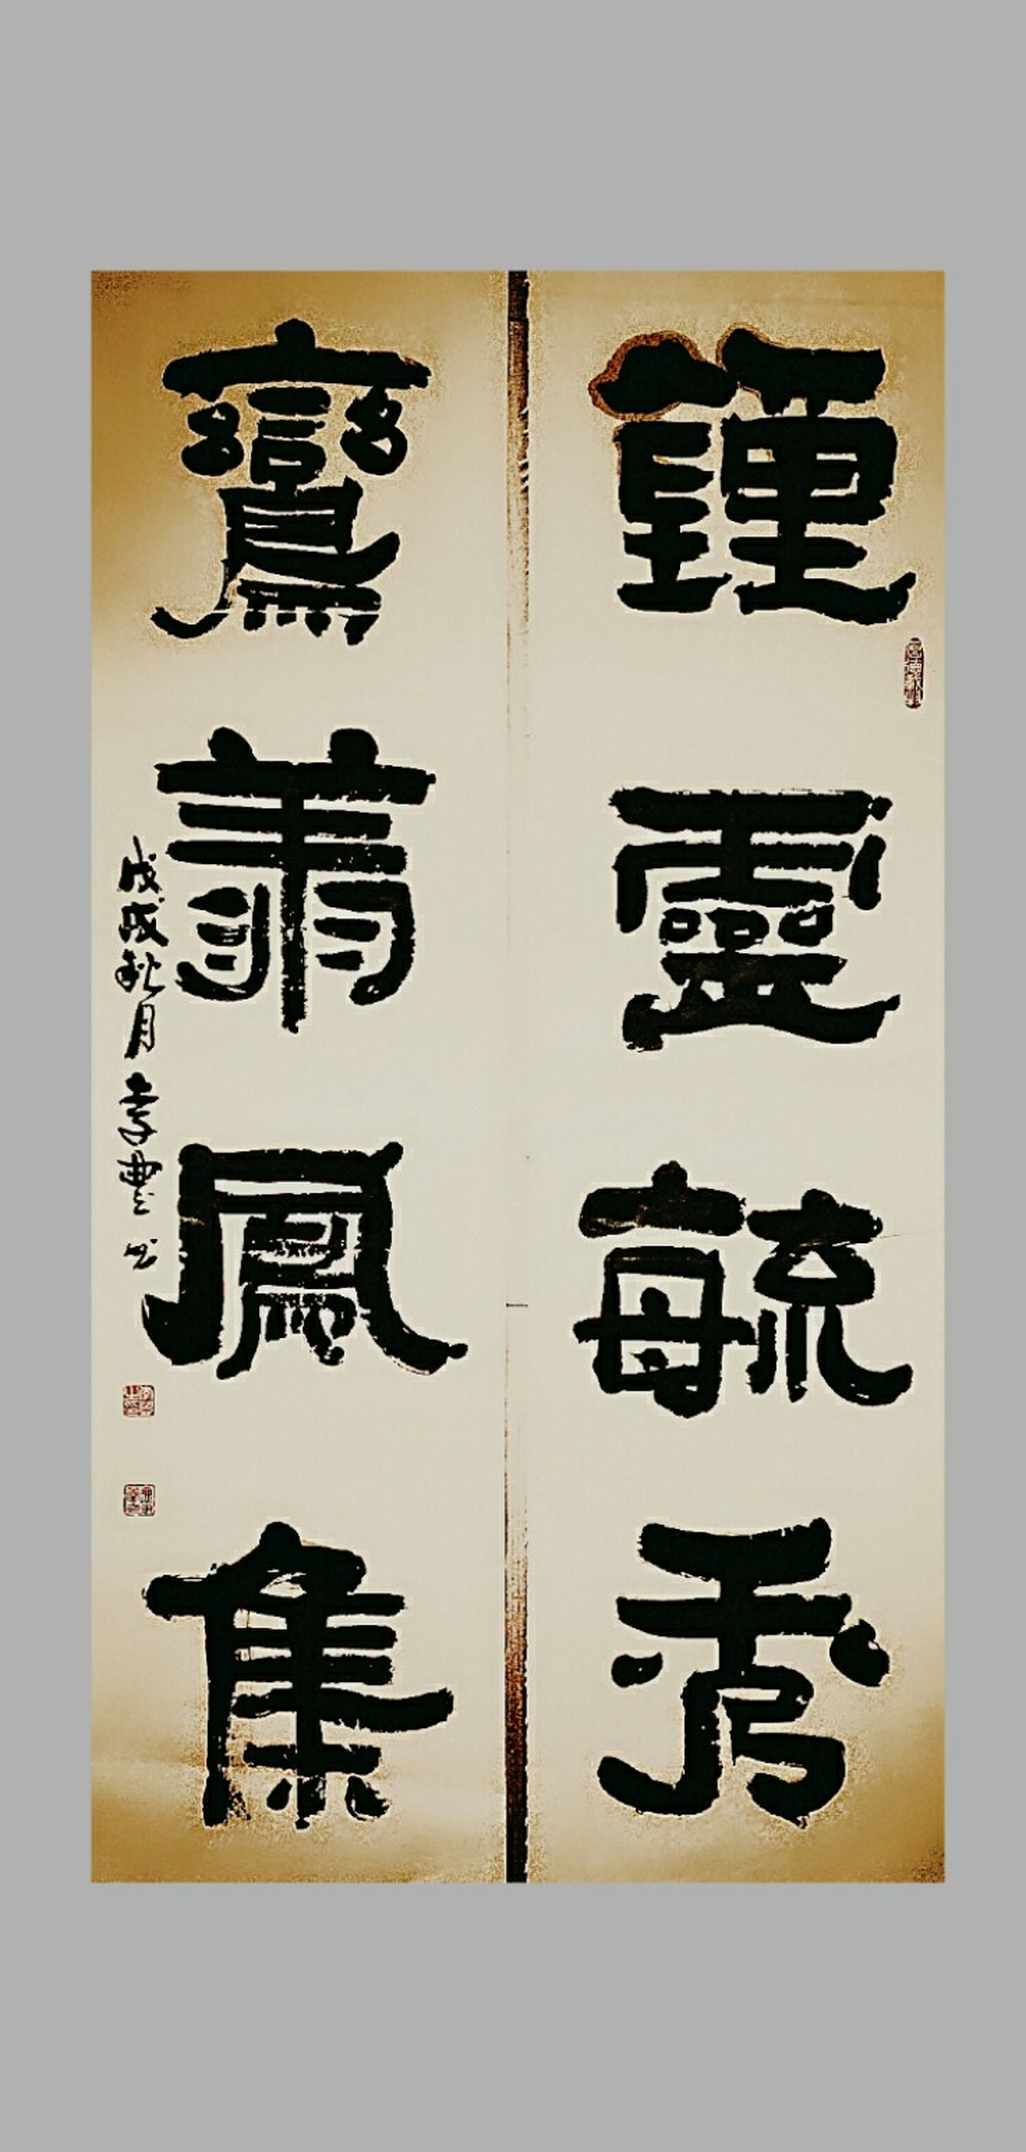 鍾靈毓秀
鸞翥鳳集
戊戌秋月孝豐书